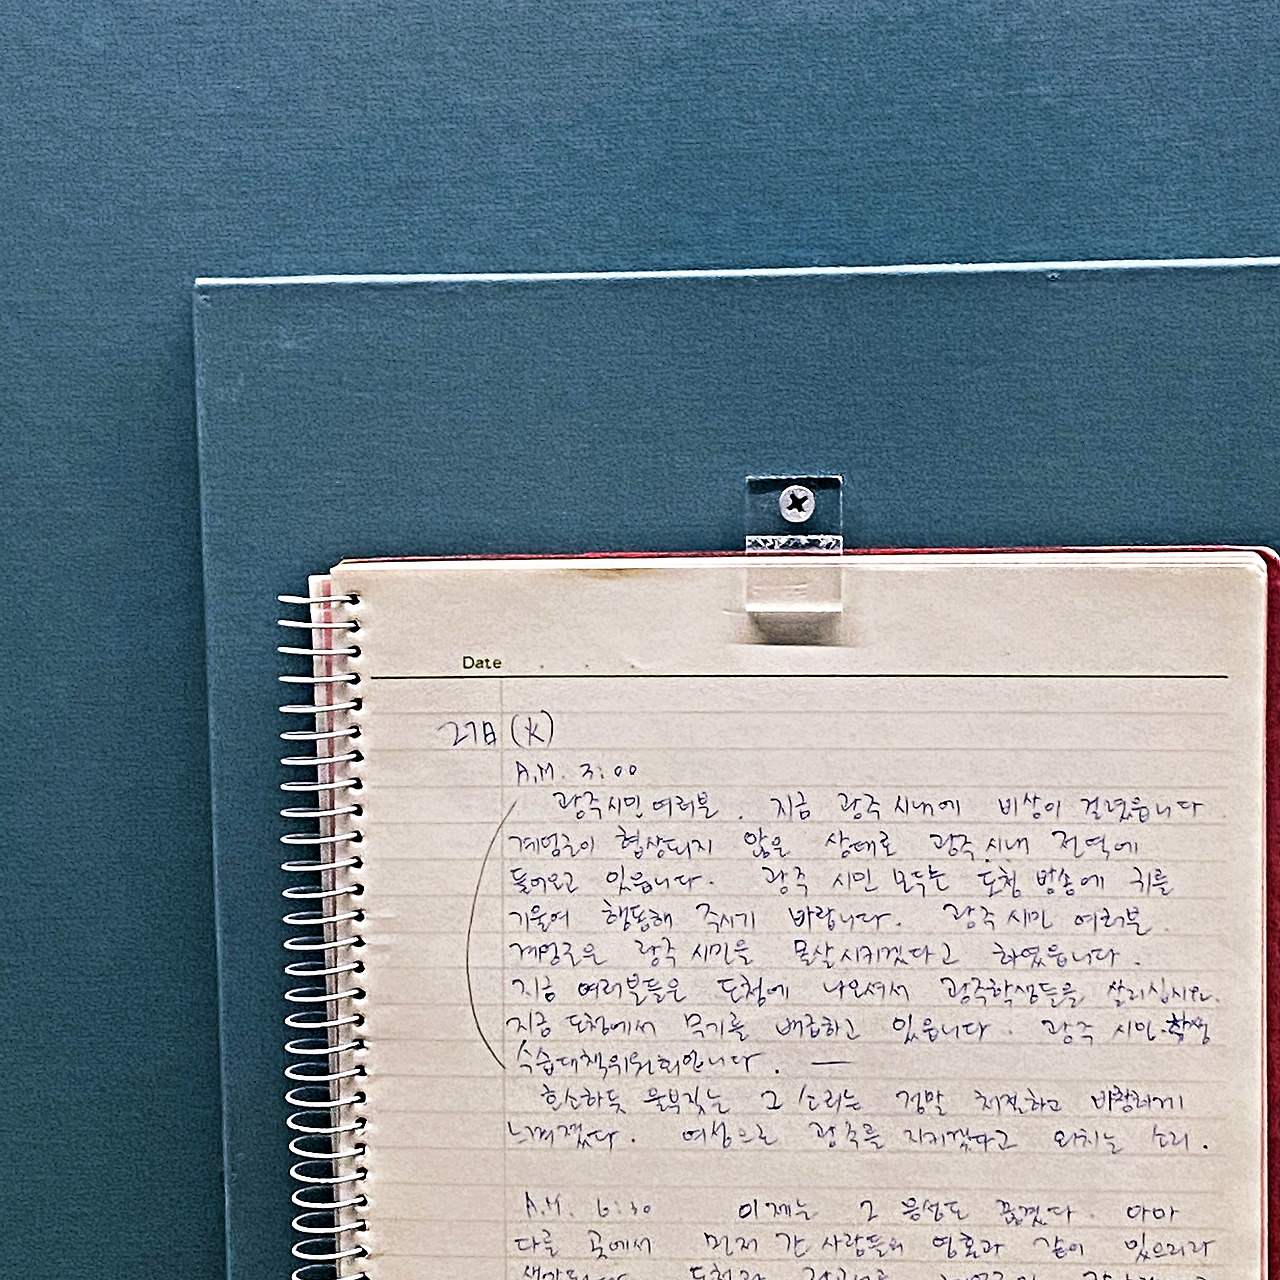 Date
27日 (火)
A.M. 3:00
광주시민 여러분. 지금 광주 시내에 비상이 걸렸읍니다.
계엄군이 협상되지 않은 상태로 광주 시내 전역에
들어오고 있읍니다. 광주 시민 모두는 도청 방송에 귀를
기울여 행동해 주시기 바랍니다. 광주 시민 여러분.
계엄군은 광주 시민을 몰살시키겠다고 하였읍니다.
지금 여러분들은 도청에 나오셔서 광주학생들을 살리십시요.
지금 도청에서 무기를 배급하고 있읍니다. 광주 시민.학생
수습대책위원회입니다. —
호소하듯 울부짖는 그 소리는 정말 처절하고 비장하게
느껴졌다. 여성으로 광주를 지키겠다고 외치는 소리.
A.M. 6:30 이제는 그 음성도 끊겼다. 아마
다른 곳에서 먼저 간 사람들의 영혼과 같이 있으리라